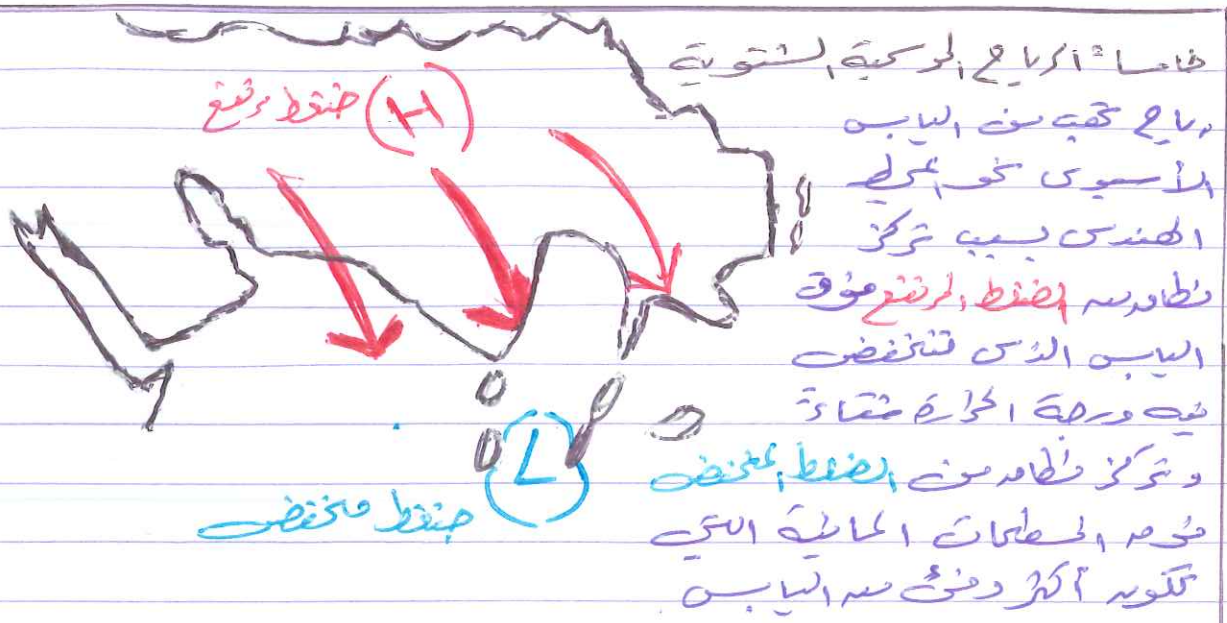 خامساً: الرياح الموسمية الشتوية
رياح تهب من اليابس
الأسيوى نحو المحيط
الهندى بسبب تركز
نظام من الضغط المرتفع فوق
اليابس الذى تنخفض
فيه درجة الحرارة شتاءً
وتركز نظام من الضغط المنخفض
فوق المسطحات المائية التى
تكون أكثر دفئ من اليابس
(H) ضغط مرتفع
(L)
ضغط منخفض